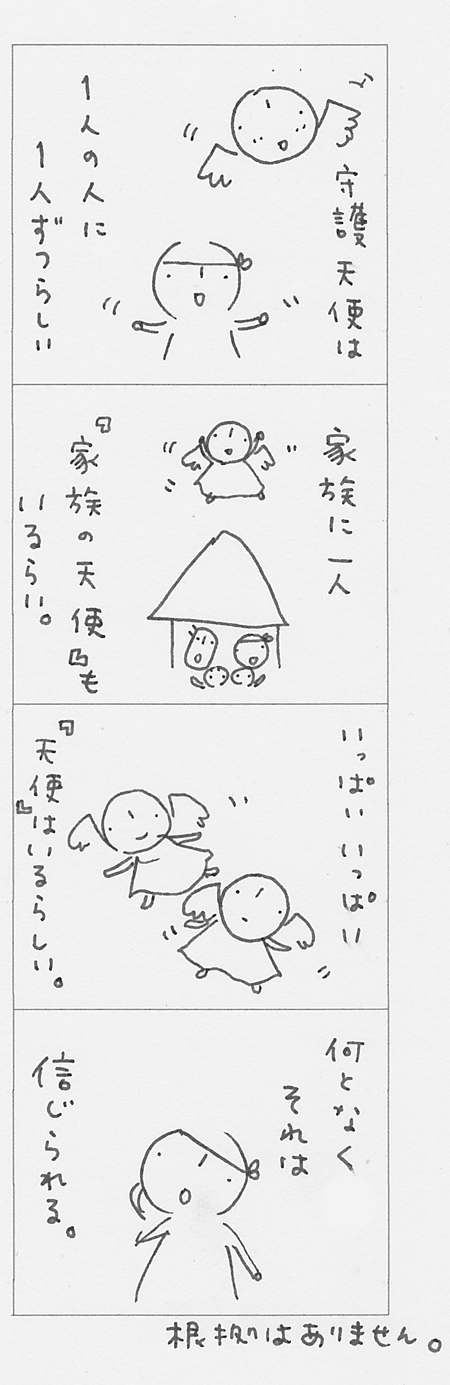 守護天使は
1人の人に
1人ずつらしい
家族に一人
『家族の天使』も
いるらい。
いっぱいいっぱい
『天使』はいるらしい。
何となく
それは
信じられる。
根拠はありません。